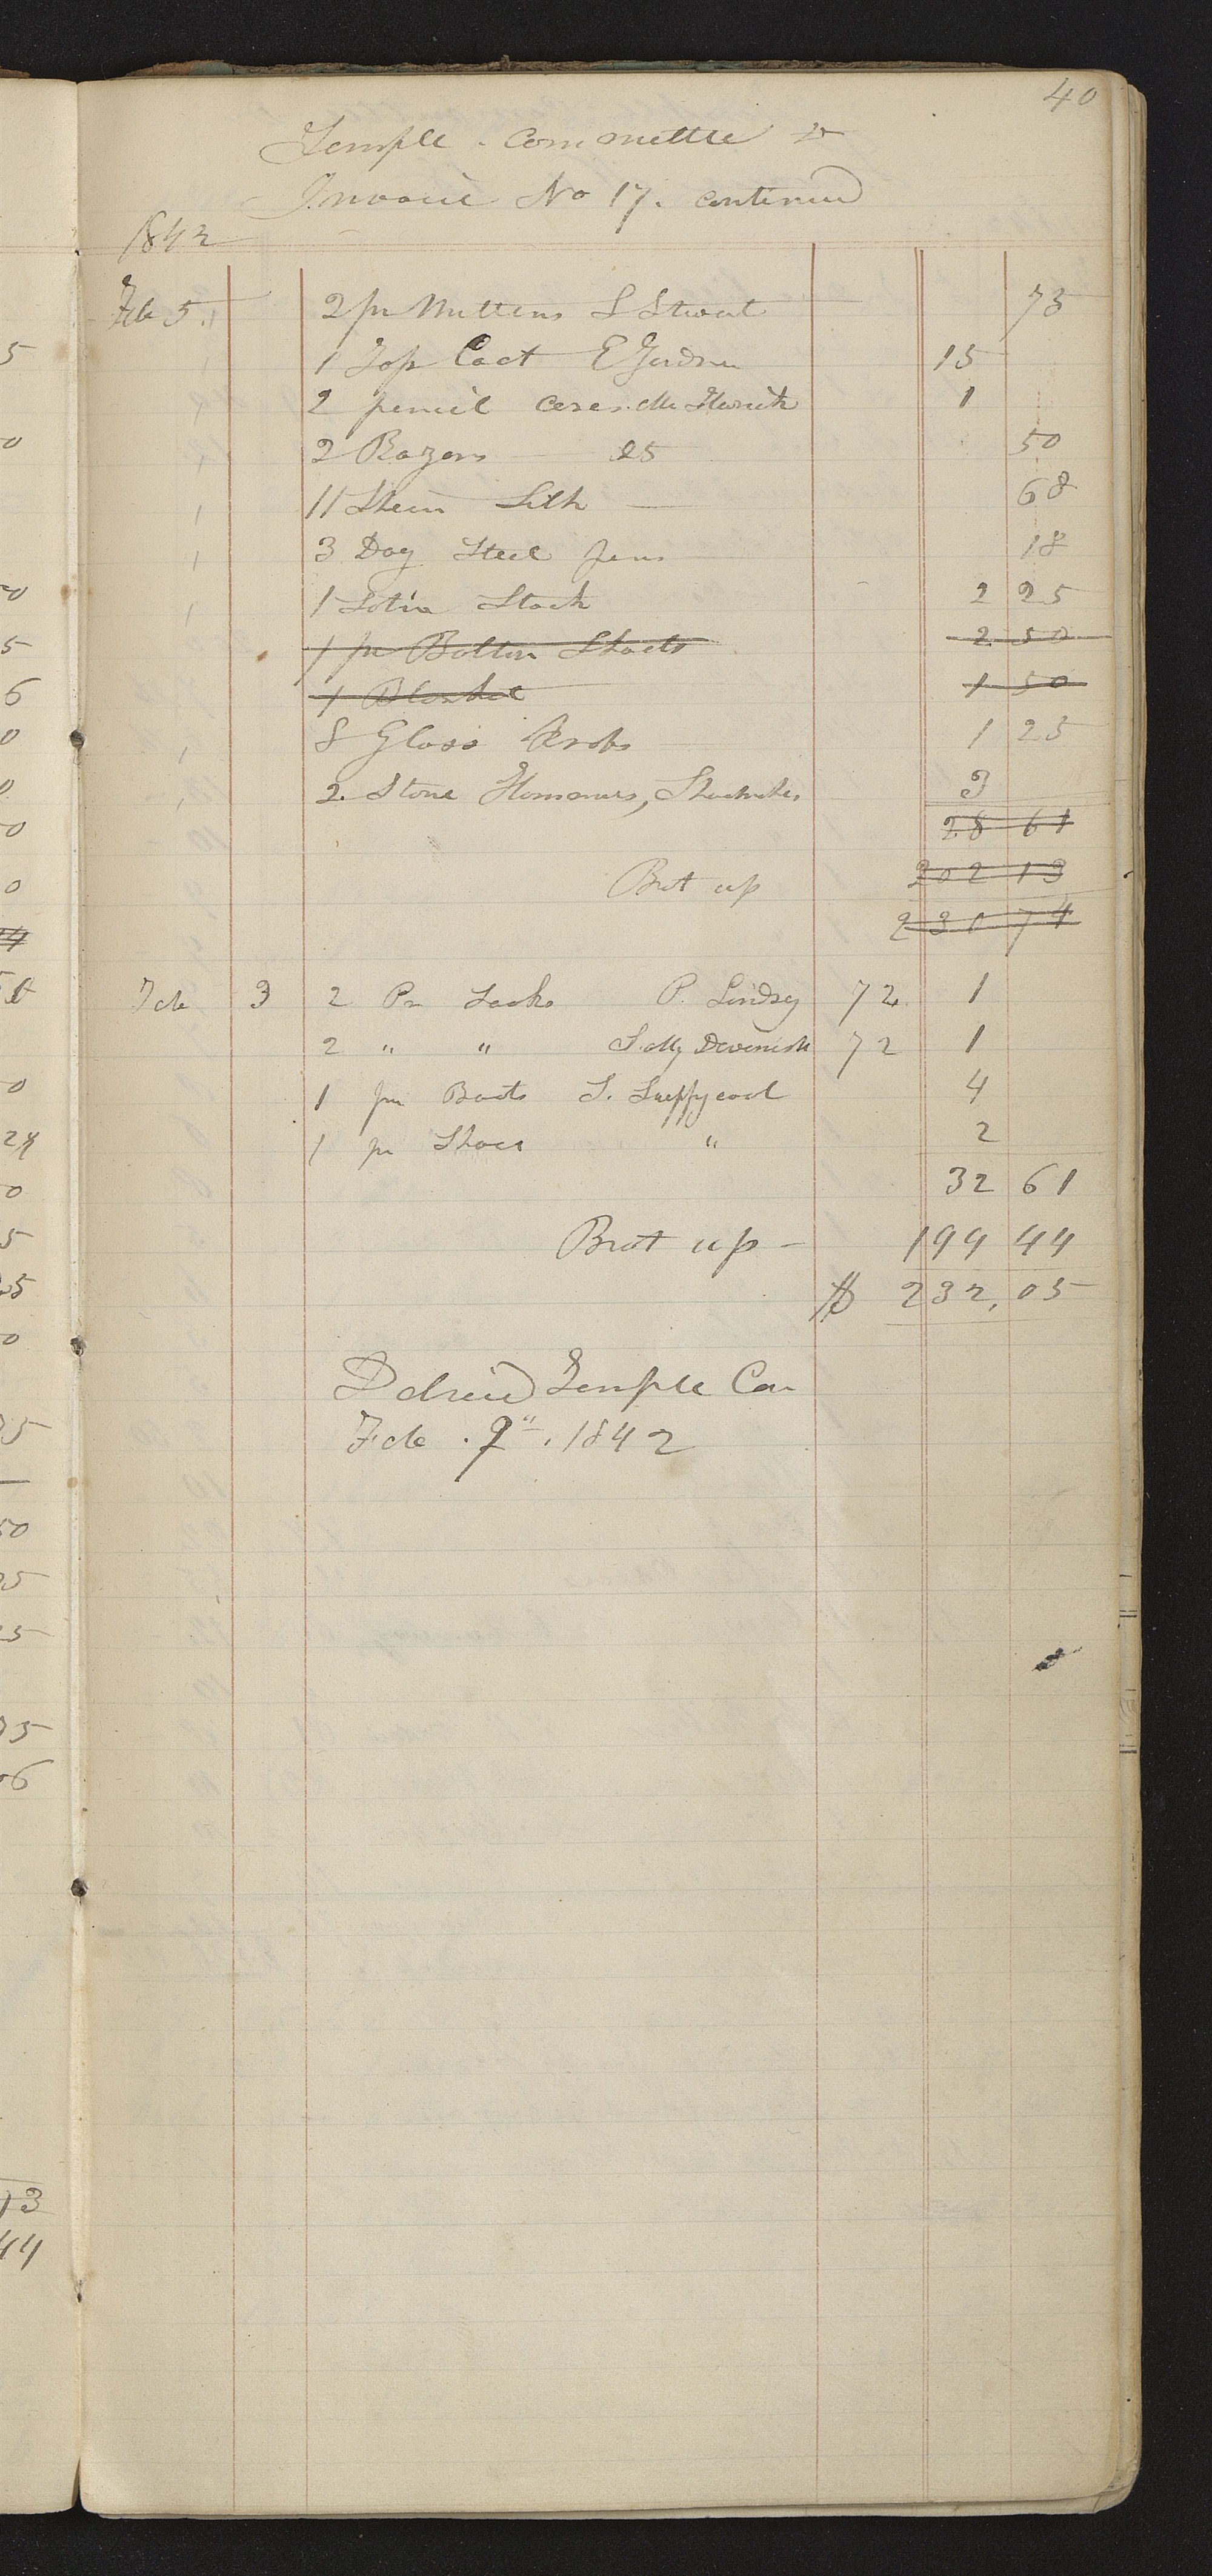 40
Temple Committee Dr
Invoice No 17. continued
1842
Feb 5. 2 pr Mittens S Stwout 75
1 Top Coat E Gardner 15
2 pencil Ceses 1
2 Razors 25 50
11 Skein Silk 68
3 Doz Steel pens 18
1 Sotin Stock 2 25
1 pr Bottin Shoets 2 50
1 Blanket 1 50
8 Glass Knobs 1 25
2 Stone Hommers, 3
28 61
202 13
Brot up
230 74
Feb 3 2 Pr Socks P. Lindsy 72 1
2 " " Sally Devenish 72 1
1 pr Boots S. 4
1 pr Shoes " 2
32 61
Brot up - 199 44
$ 232,05
Delived Temple Com
Feb. 9". 1842
5
0
50
5
6
0
0
50
0
0
24
0
5
25
0
75
50
25
25
75
13
44